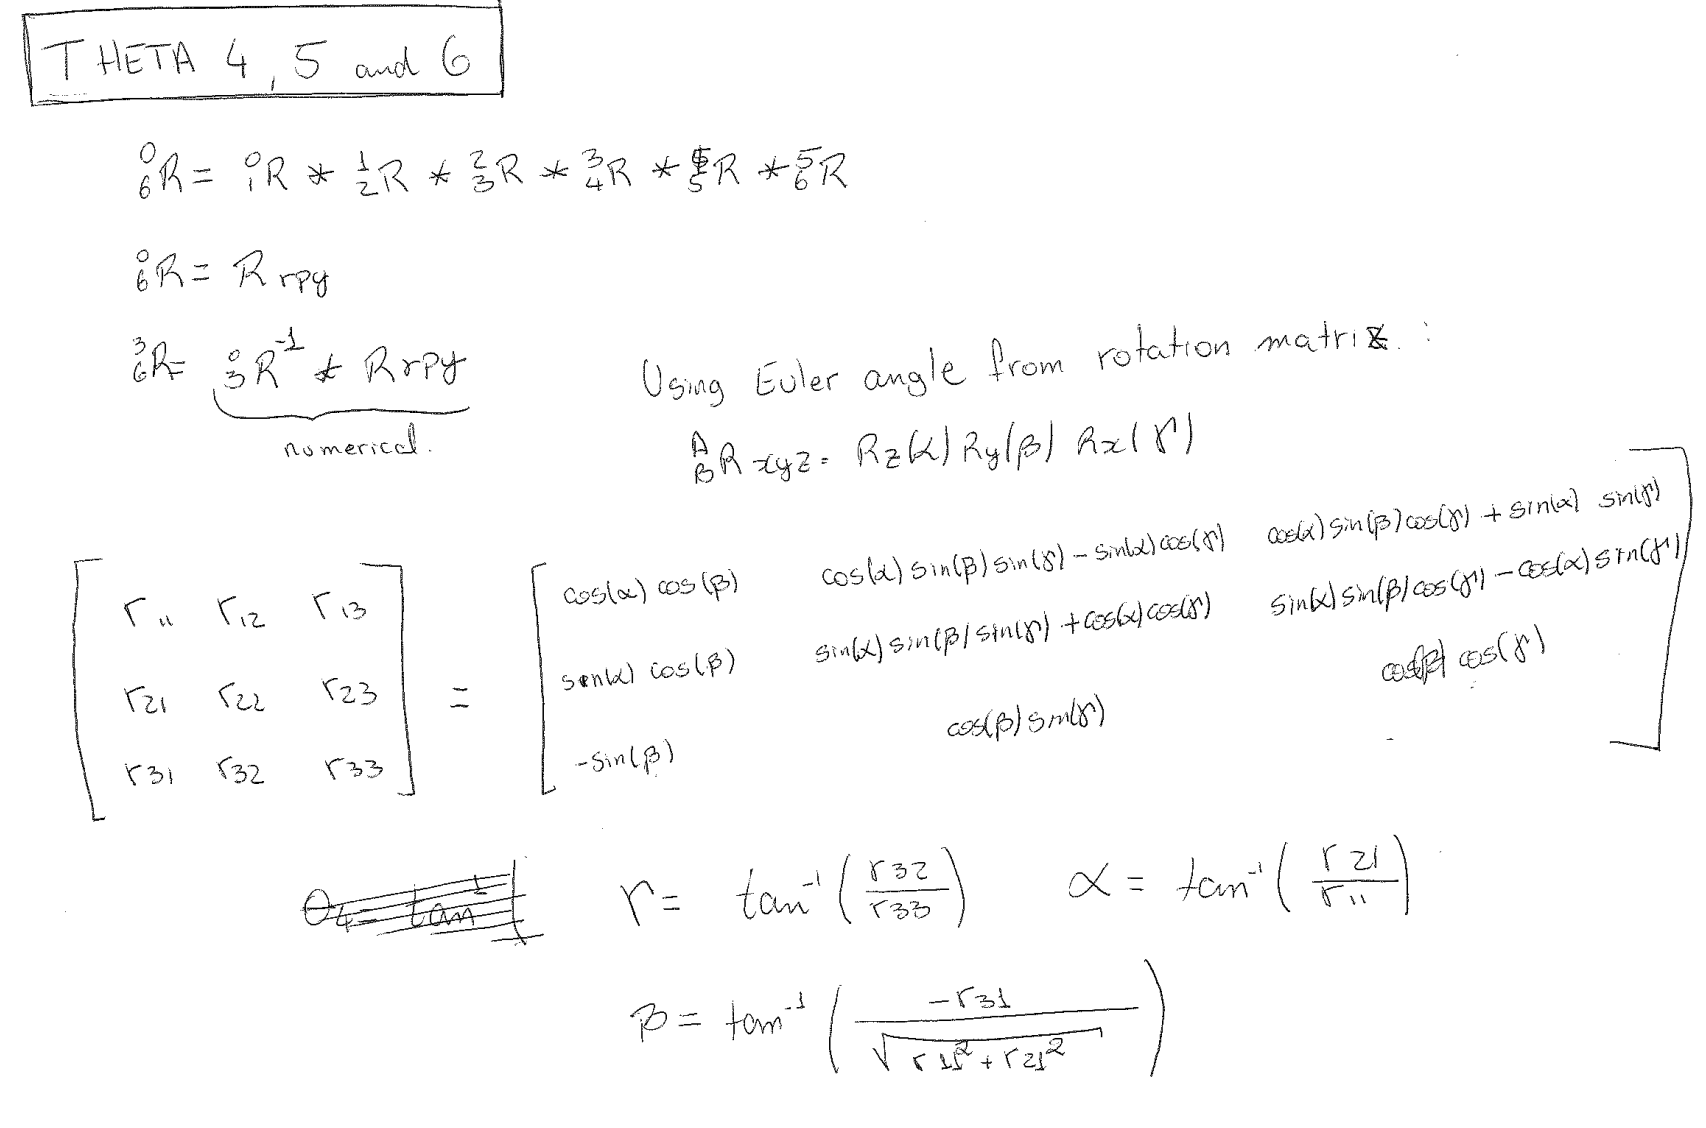 THETA 4, 5 and 6
⁰₆R = ⁰₁R * ¹₂R * ²₃R * ³₄R * ⁴₅R * ⁵₆R
⁰₆R = R rpy
³₆R = ⁰₃R⁻¹ * Rrpy
numerical.
Using Euler angle from rotation matrix :
ᴬ_B R xyz = Rz(α) Ry(β) Rx(γ)
r11 r12 r13 cos(α) cos(β) cos(α) sin(β) sin(γ) - sin(α) cos(γ) cos(α) sin(β) cos(γ) + sin(α) sin(γ)
r21 r22 r23 = sen(α) cos(β) sin(α) sin(β) sin(γ) + cos(α) cos(γ) sin(α) sin(β) cos(γ) - cos(α) sin(γ)
r31 r32 r33 -sin(β) cos(β) sin(γ) cos(β) cos(γ)
γ = tan⁻¹ (r32 / r33) α = tan⁻¹ (r21 / r11)
β = tan⁻¹ (-r31 / √(r11² + r21²))